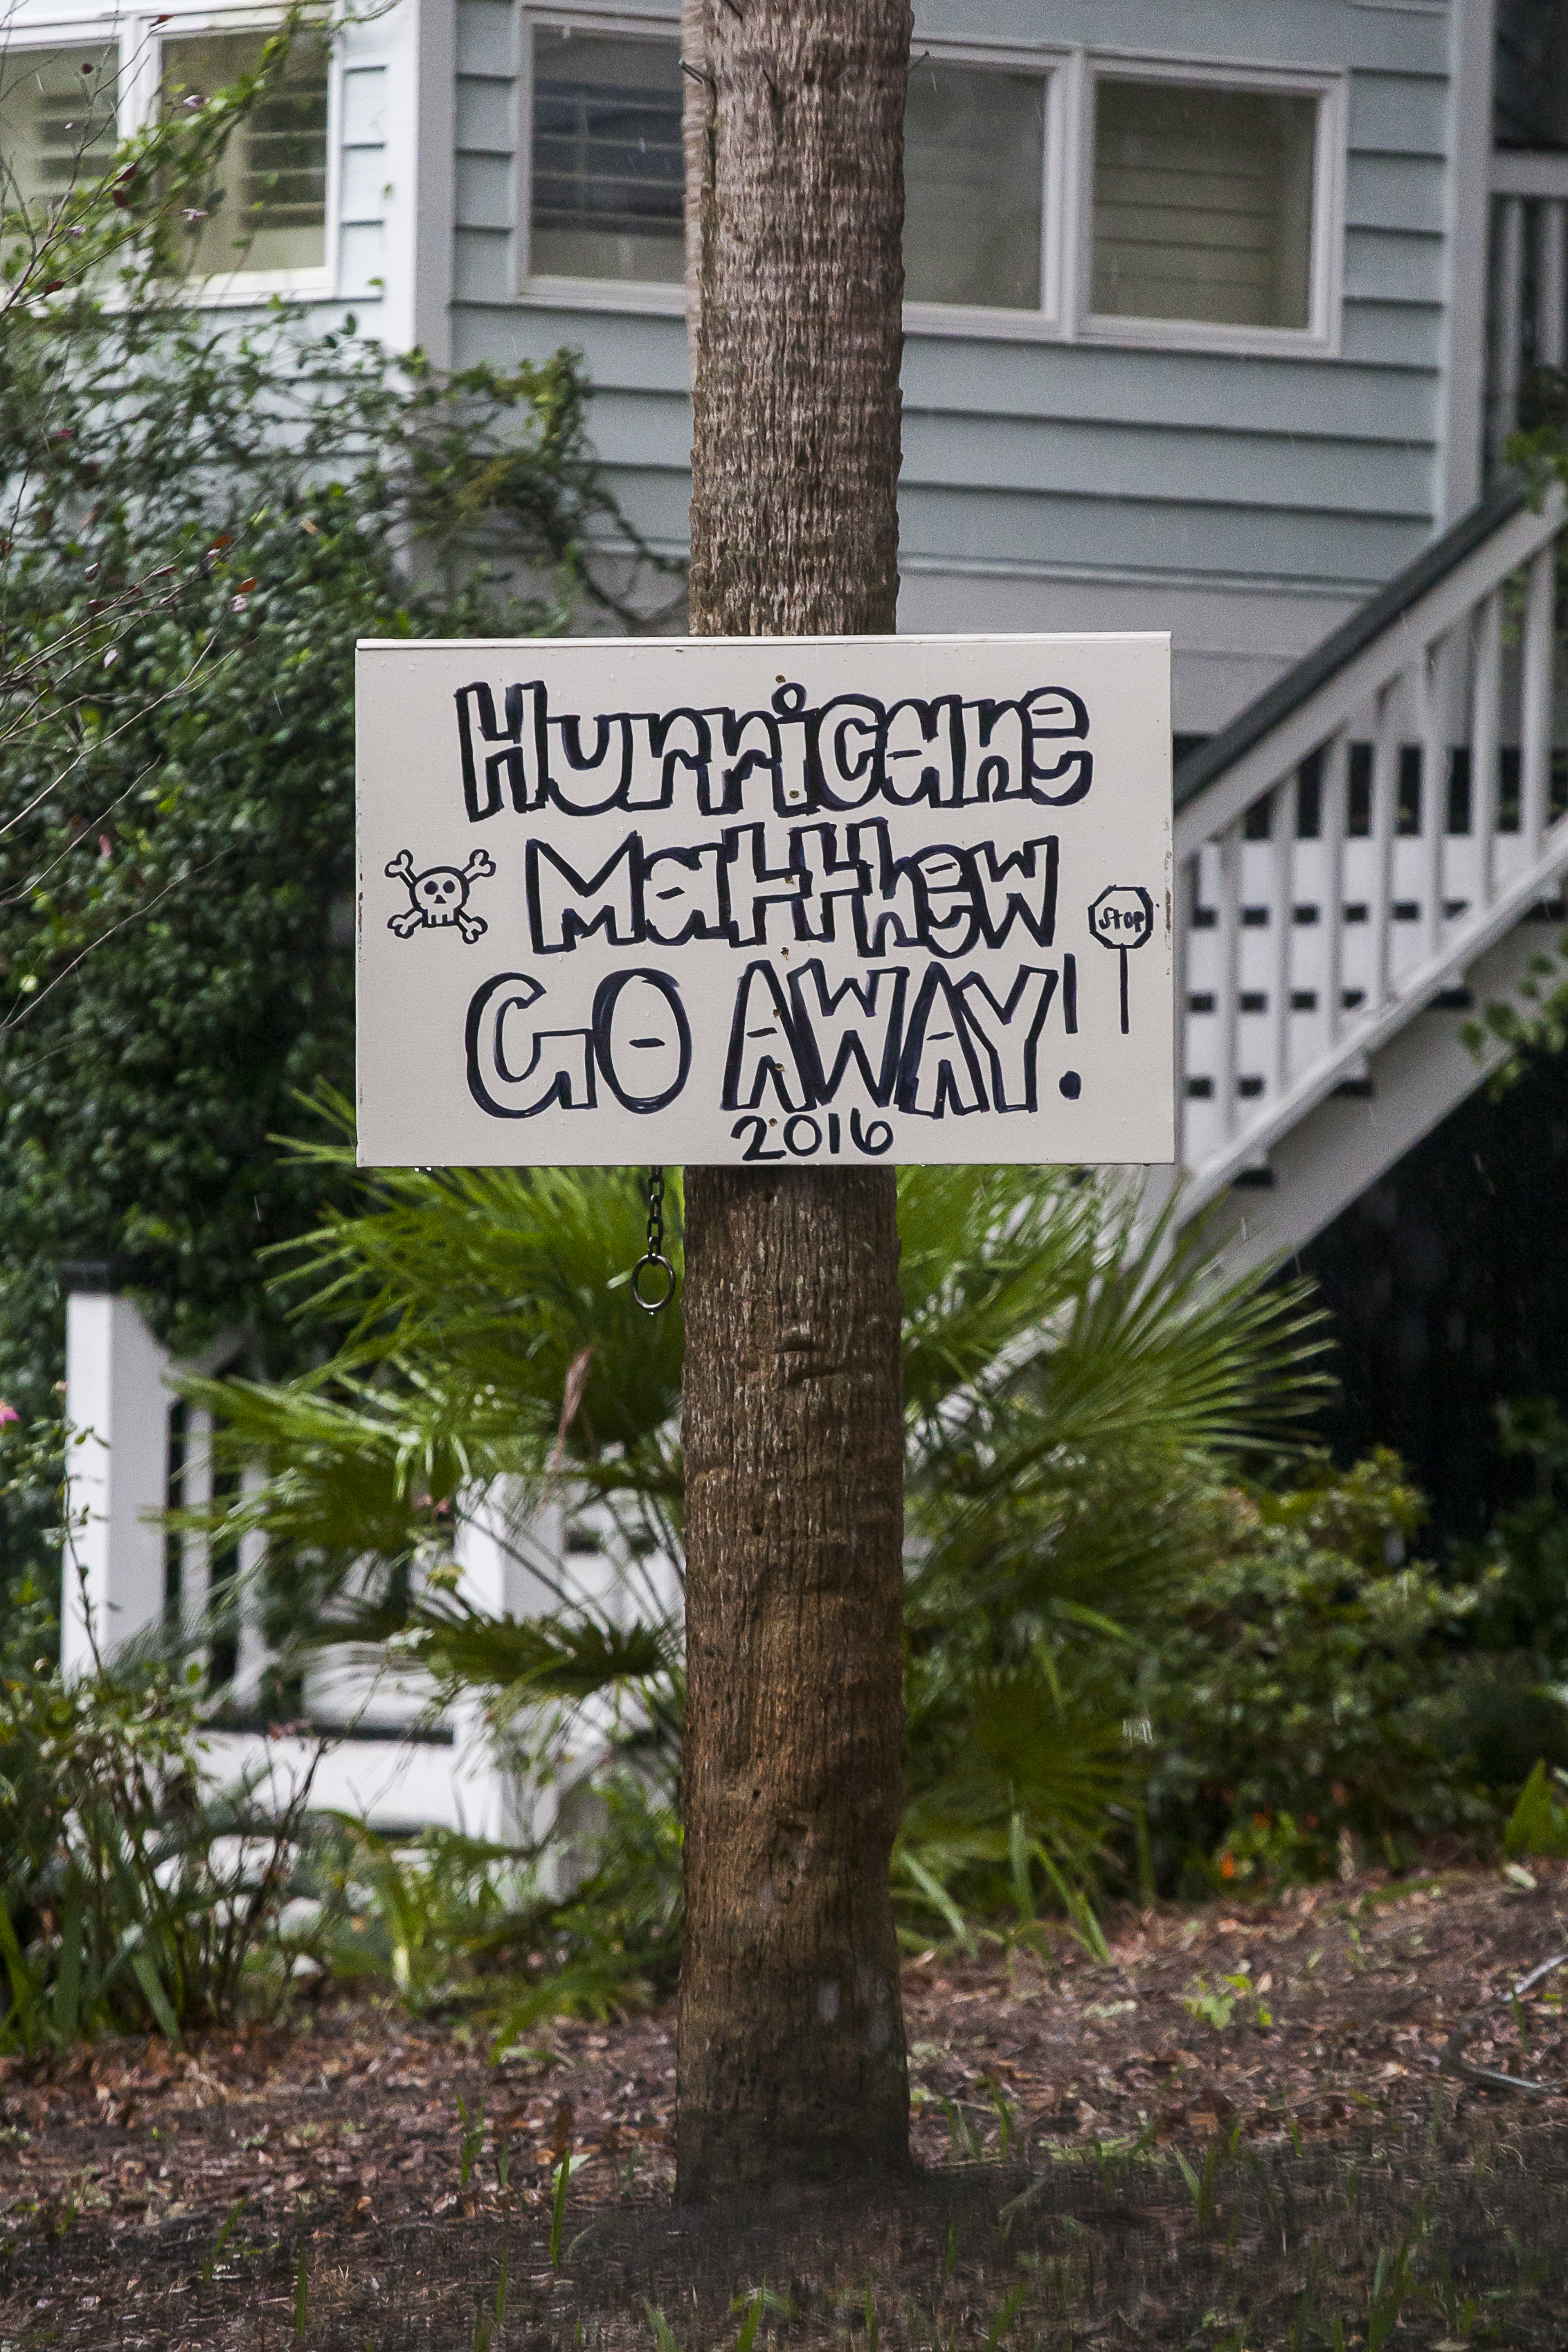 Hurricane
Matthew
STOP
GO AWAY!
2016